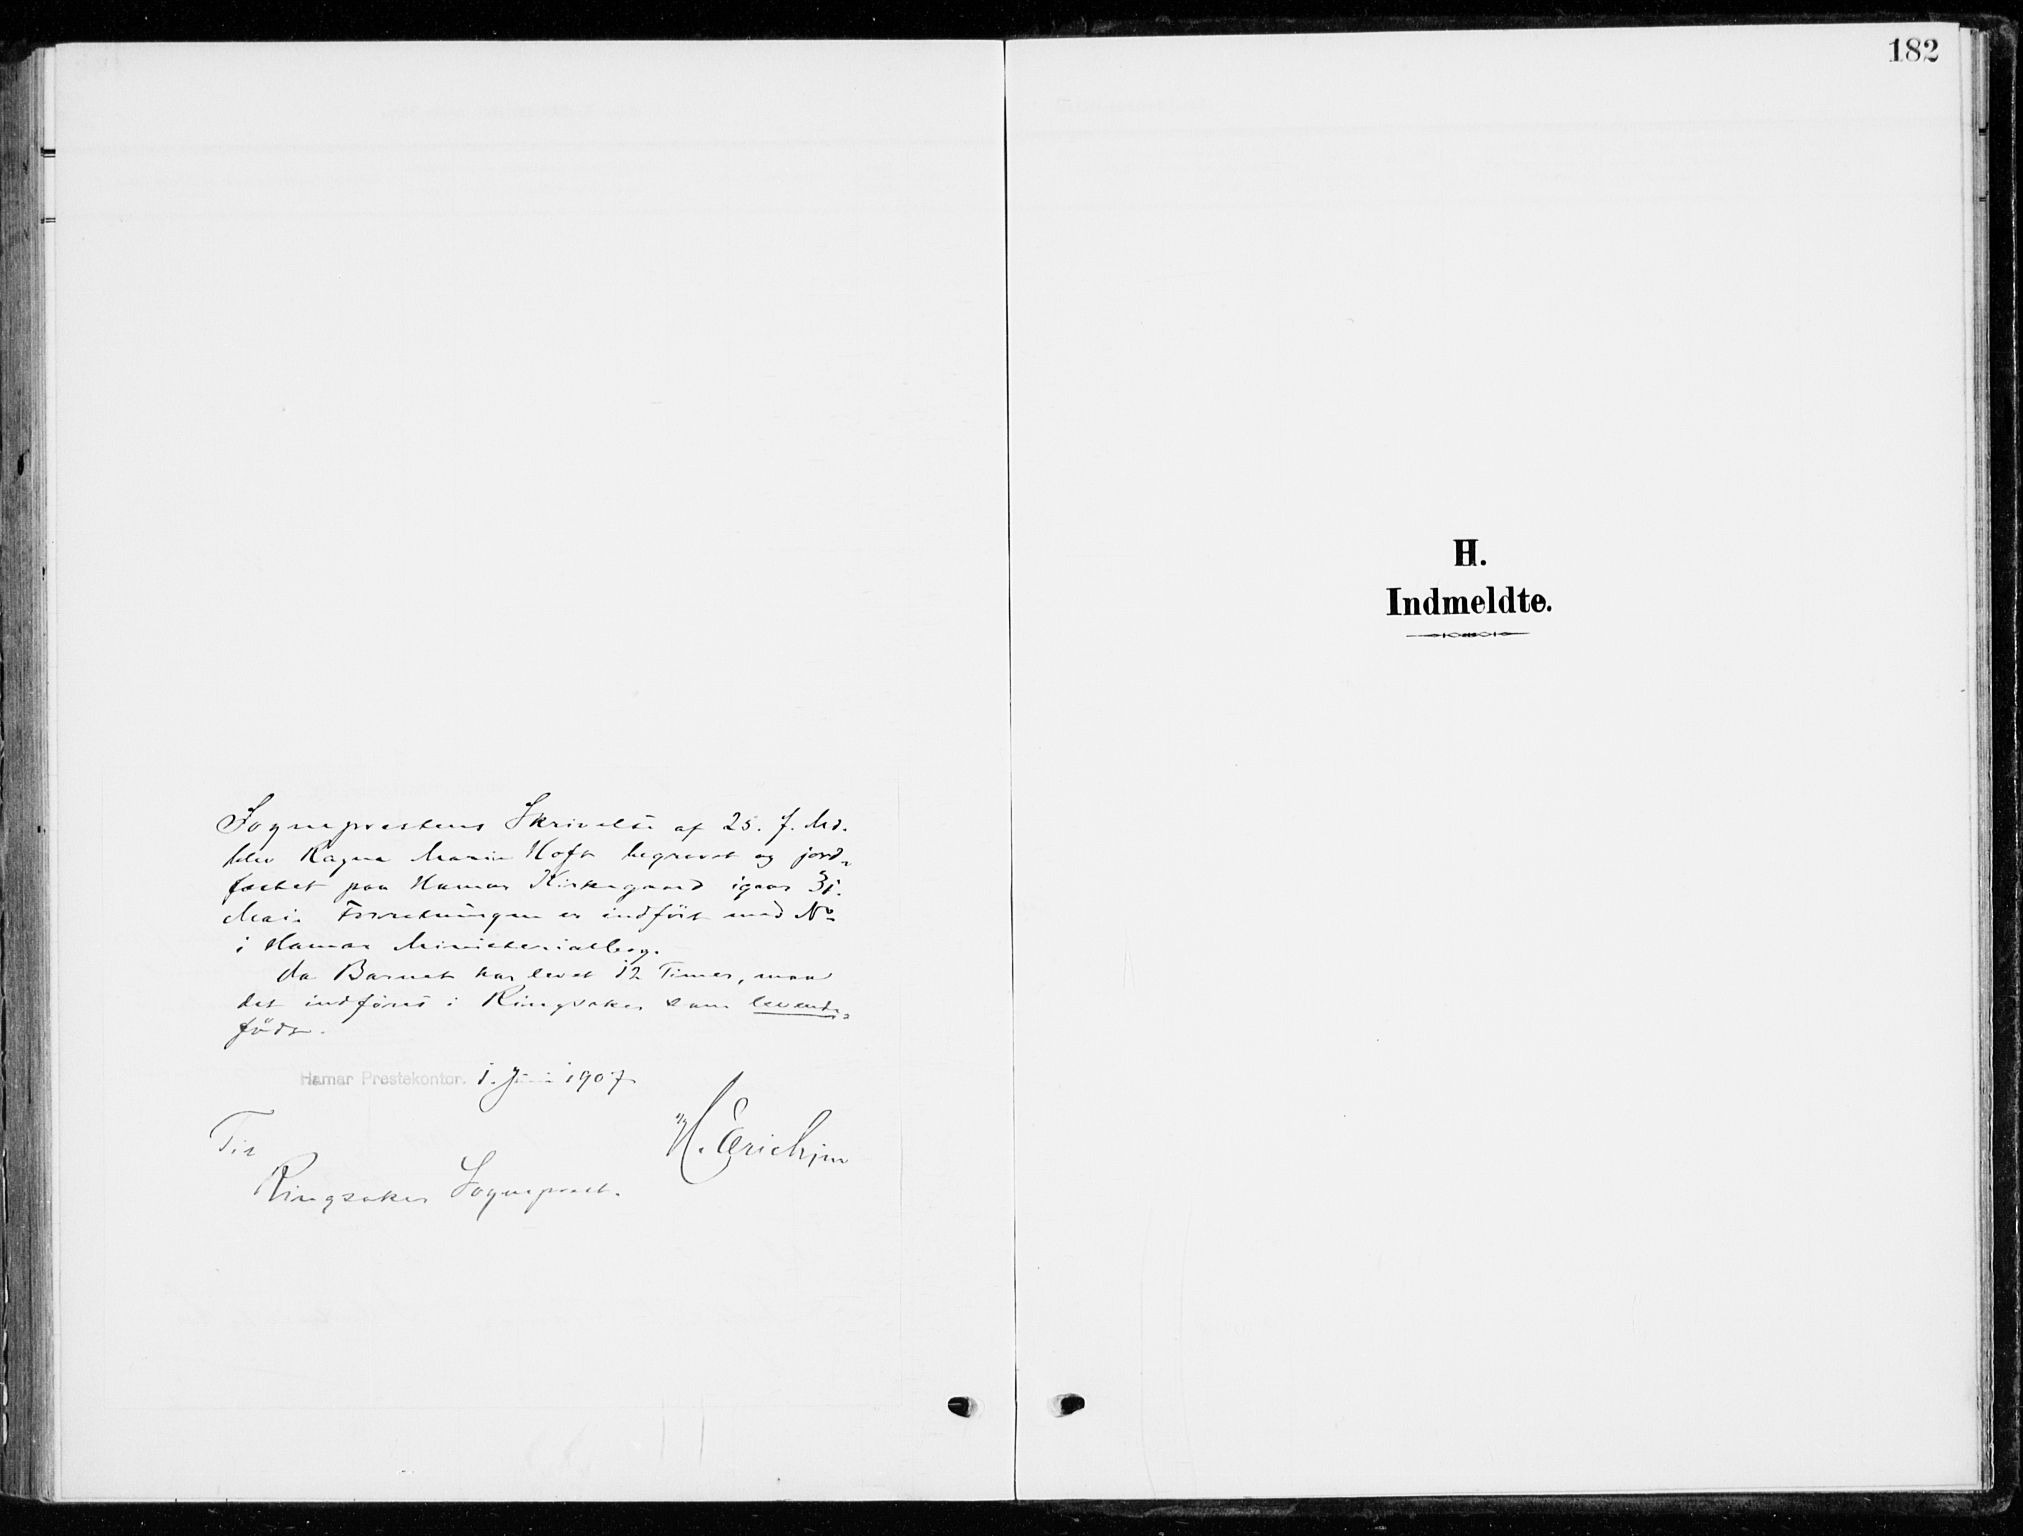 Sogneprestens Skrivelse af 25. f. Md.
blev Ragna Marie Hoft begravet og jord-
fæstet paa Hamar Kirkegaard igaar 31.
Mai. Forretningen er indført med No
i Hamar Ministerialbog.
Da Barnet har levet 12 Timer, maa
det indføres i Ringsaker som levende-
født.
Hamar Prestekontor. 1. Juni 1907.
H. Erichsen
Til
Ringsaker Sogneprest.
182
H.
Indmeldte.